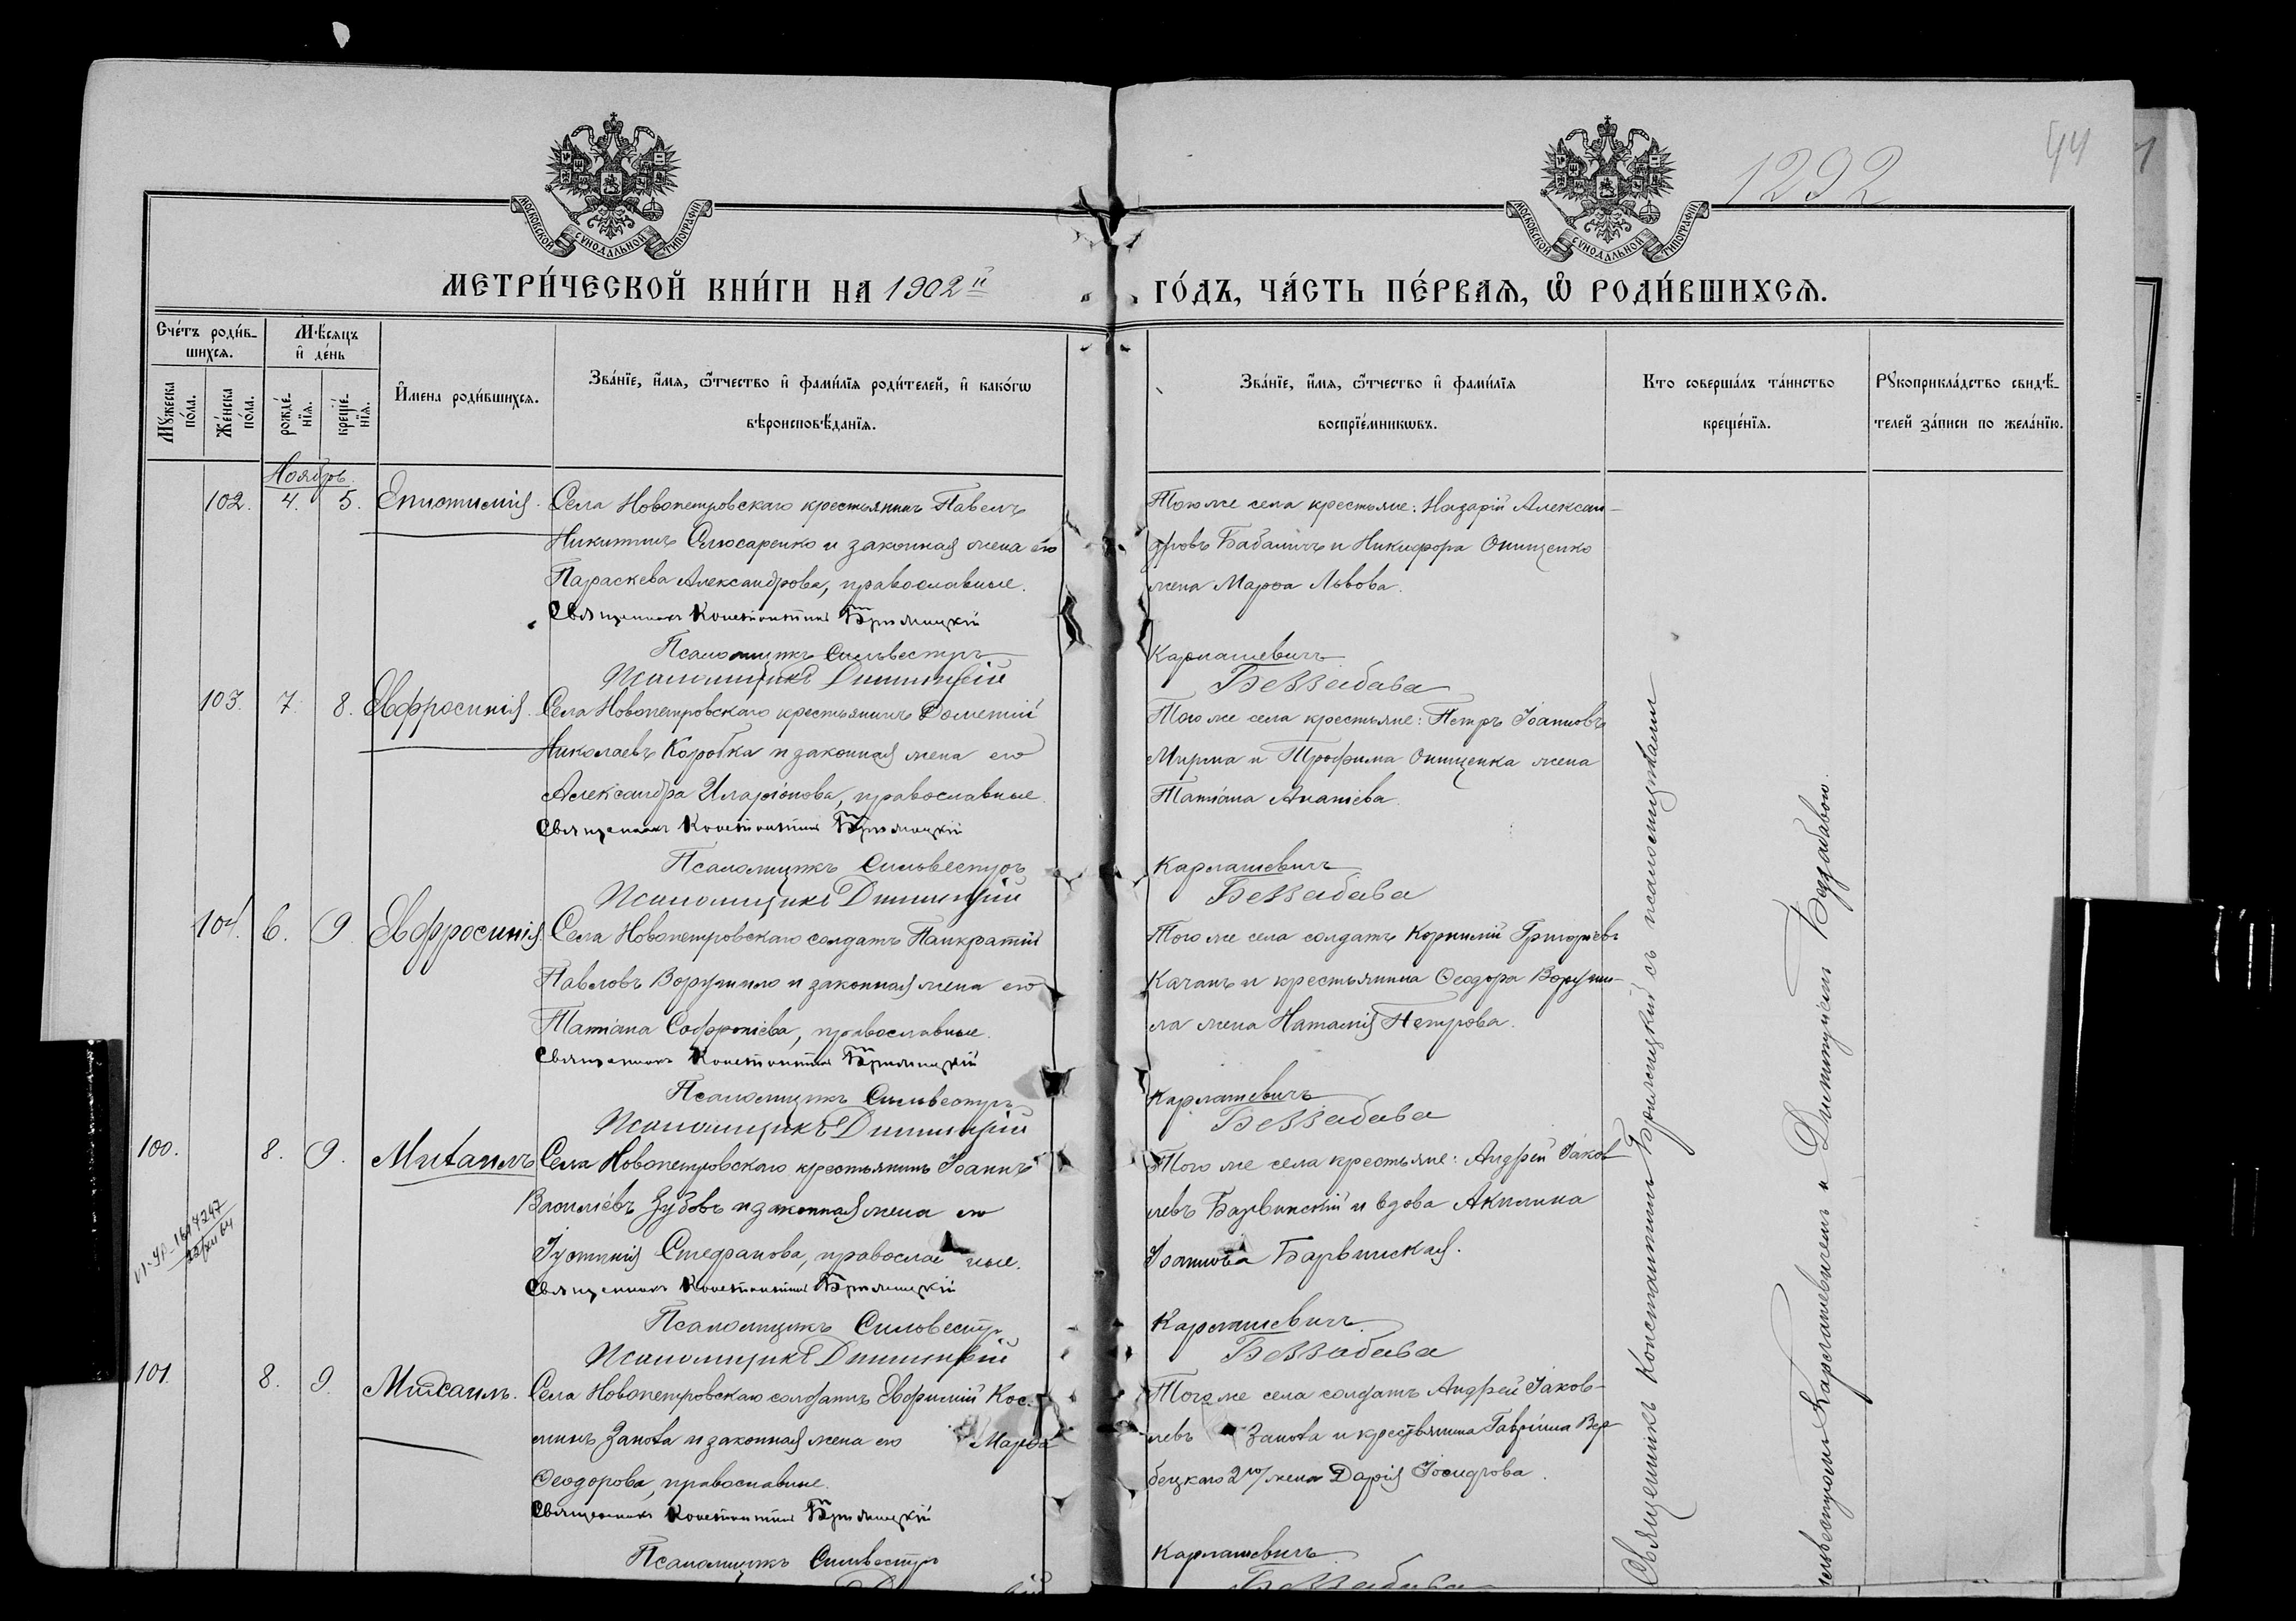 1292
44
МОСКОВСКОЙ СѴНОДАЛЬНОЙ ТИПОГРАФІИ
МОСКОВСКОЙ СѴНОДАЛЬНОЙ ТИПОГРАФІИ
МЕТРИ́ЧЕСКОЙ КНИ́ГИ НА 1902й
ГО́ДЪ, ЧА́СТЬ ПЕ́РВАѦ, Ѽ РОДИ́ВШИХСѦ.
Сче́тъ роди́в-
шихсѧ.
Мѣ́сѧцъ
и҆ де́нь
Мꙋжеска по́ла.
Же́нска по́ла.
рожде́-
нїѧ.
креще́-
нїѧ.
И҆мена роди́вшихсѧ.
Зва́нїе, и҆́мѧ, ѻ҆́тчество и҆ фами́лїѧ роди́телей, и҆ како́гѡ
вѣроисповѣ́данїѧ.
Зва́нїе, и҆́мѧ, ѻ҆́тчество и҆ фами́лїѧ
воспрїе́мникѡвъ.
Кто соверша́лъ та́инство
креще́нїѧ.
Рꙋкоприкла́дство свидѣ́-
телей за́писи по жела́нїю.
Ноябрь
102. 4. 5. Епистимія. Села Новопетровскаго крестьянинъ Павелъ
Никитинъ Слюсаренко и законная жена его
Параскева Александрова, православные.
Священникъ Константинъ
Псаломщикъ Сильвестръ
Псаломщикъ Димитрій
Того же села крестьяне: Назарій Алексан-
дровъ Бабаничъ и Никифора Онищенко
жена Марѳа Львова.
Карпашевичъ
Беззабава
103. 7. 8. Евфросинія. Села Новопетровскаго крестьянинъ Дометій
Николаевъ Коробка и законная жена его
Александра Иларіонова, православные.
Священникъ Константинъ
Псаломщикъ Сильвестръ
Псаломщикъ Димитрій
Того же села крестьяне: Петръ Іоанновъ
и Трофима Онищенка жена
Татіана Ананіева.
Карпашевичъ
Беззабава
104. 6. 9. Евфросинія. Села Новопетровскаго солдатъ Панкратій
Павловъ Ворушило и законная жена его
Татіана Софроніева, православные.
Священникъ Константинъ
Псаломщикъ Сильвестръ
Псаломщикъ Димитрій
Того же села солдатъ Корнилій Григоріевъ
Качанъ и крестьянина Ѳеодора Воруши-
ла жена Наталія Петрова.
Карпашевичъ
Беззабава
100. 8. 9. Михаилъ Села Новопетровскаго крестьянинъ Іоаннъ
Василіевъ Зубовъ и законная жена его
Іустинія Стефанова, православные.
Священникъ Константинъ
Псаломщикъ Сильвестръ
Псаломщикъ Димитрій
Того же села крестьяне: Андрей Іаков-
левъ Барвинскій и вдова Акилина
Іоаннова Барвинская.
Карпашевичъ
Беззабава
101. 8. 9. Михаилъ. Села Новопетровскаго солдатъ Евфимій Кос-
минъ Запоха и законная жена его Марѳа
Ѳеодорова, православные.
Священникъ Константинъ
Псаломщикъ Сильвестръ
Того же села солдатъ Андрей Іаков-
левъ Запоха и крестьянина Гавріила Вер-
бецкаго 2го жена Дарія Іосифова.
Карпашевичъ
Беззабава
Священникъ Константинъ съ псаломщиками
Сильвестромъ Карпашевичемъ и Димитріемъ Беззабавою.